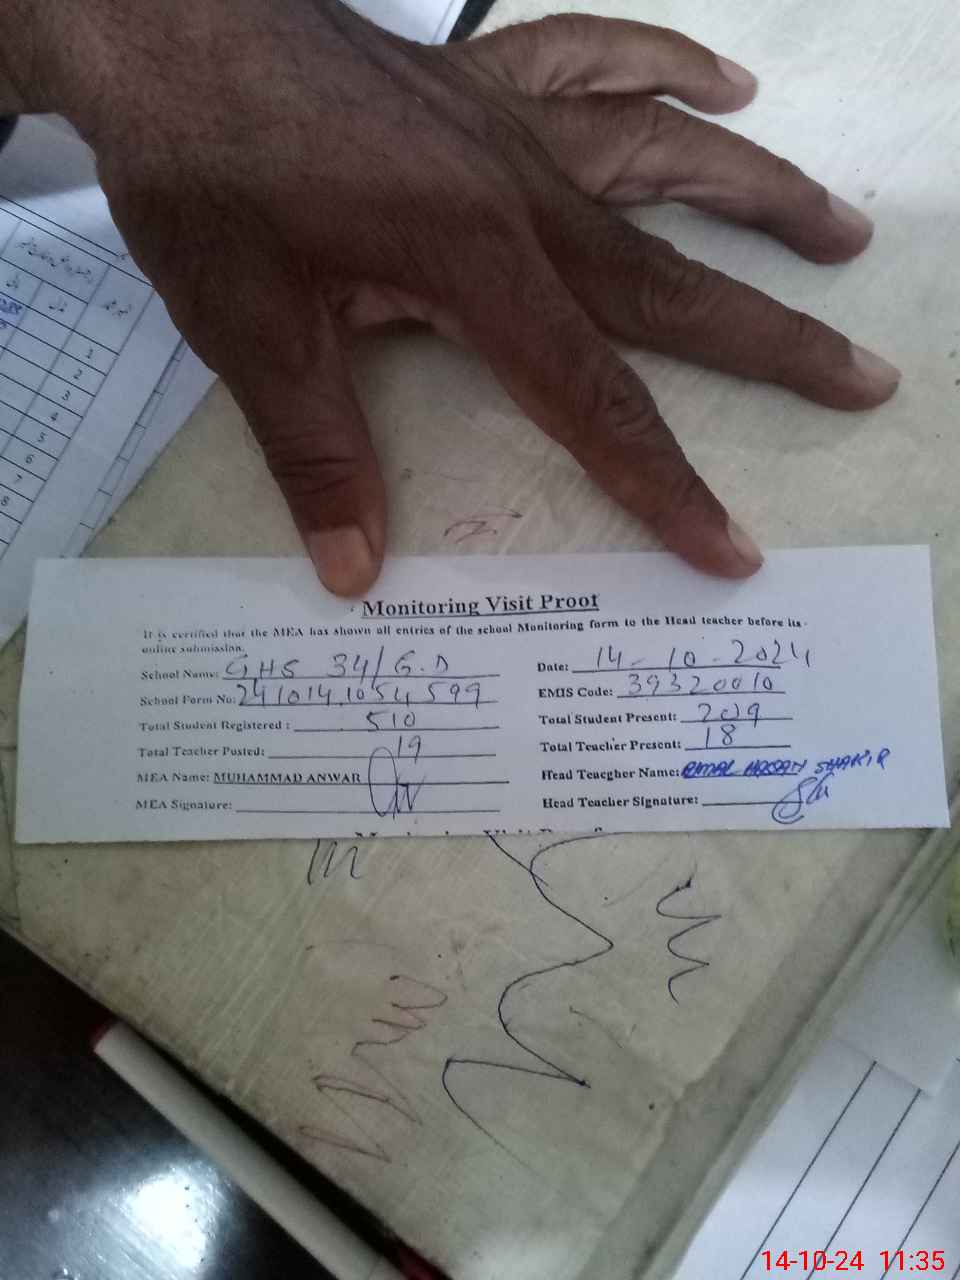 1
2
3
4
5
6
7
8
Monitoring Visit Proof
It is certified that the MEA has shown all entries of the school Monitoring form to the Head teacher before its
online submission.
School Name: GHS 34/G.D Date: 14-10-2024
School Form No: 241014.1054599 EMIS Code: 39320010
Total Student Registered : 510 Total Student Present: 209
Total Teacher Posted: 19 Total Teacher Present: 18
MEA Name: MUHAMMAD ANWAR Head Teacgher Name: HASAN SHAKIR
MEA Signature: Head Teacher Signature:
14-10-24 11:35